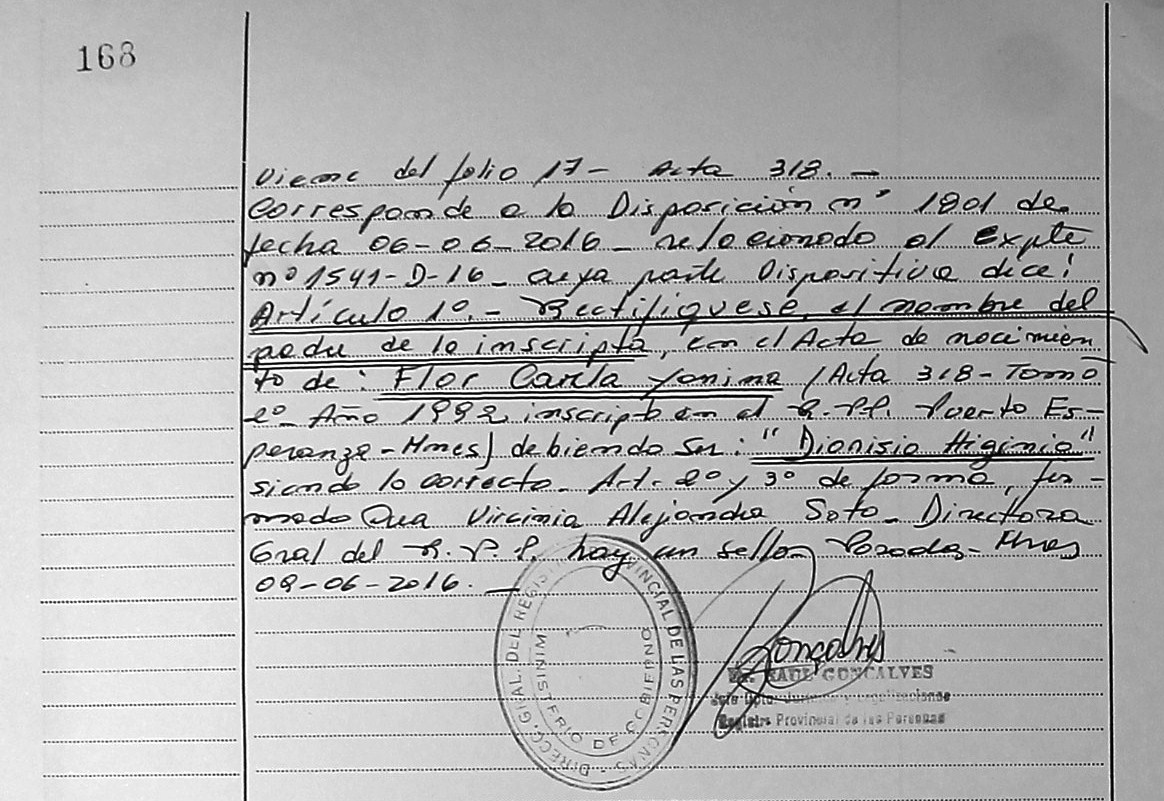 168
Viene del folio 17- Acta 318.-
Corresponde a la Disposición nº 1901 de
fecha 06-06-2016- relacionado al Expte
nº 1541-D-16- cuya parte Dispositiva dice:
Artículo 1º.- Rectifiquese, el nombre del
padre de la inscripta, en el Acta de nacimien
to de: Flor Carela Yanina (Acta 318-Tomo
2º- Año 1992 inscripta en el R.P.P. Puerto Es-
peranza-Mnes) debiendo ser: "Dionisio Higinio"
siendo lo correcto- Art. 2º y 3º de forma, fir-
mado Dra Virginia Alejandra Soto- Directora
Gral del R.P.P. hay un sello- Posadas- Mnes
09-06-2016.-
DIRECC. GRAL. DEL REGIST PROVINCIAL DE LAS PERSONAS
MINISTERIO DE GOBIERNO
Goncalves
RAUL GONCALVES
Jefe Dpto.
Registro Provincial de las Personas